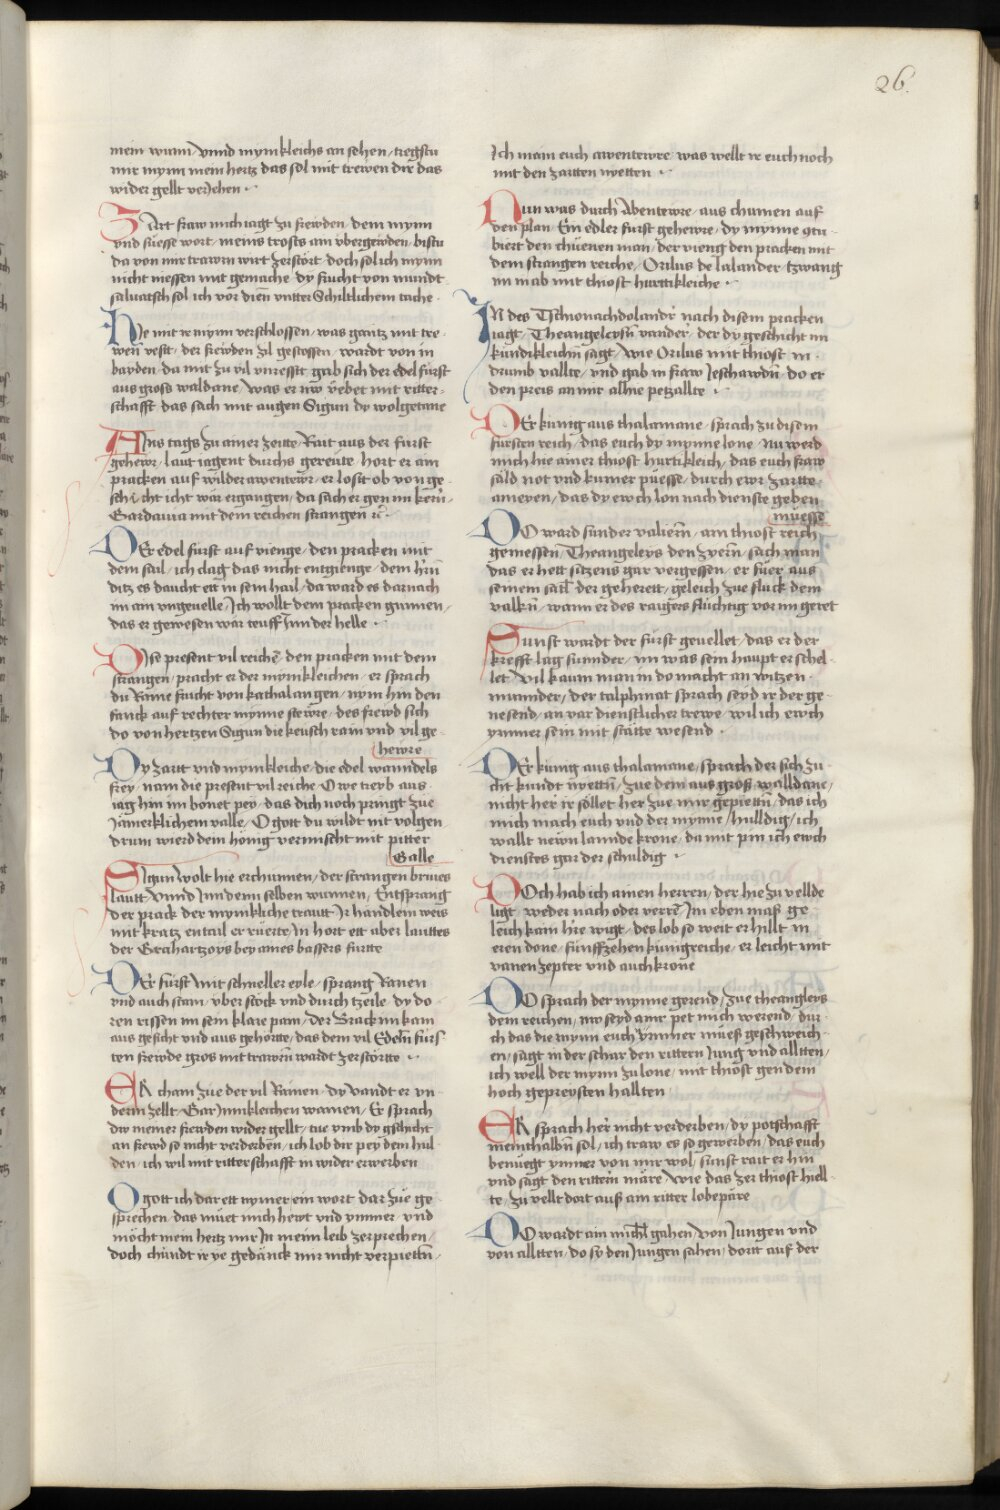 26.
mein wunn / vnnd mynnkleichs an sehen / tregstu
mir mynn mein hertz das sol mit trewen dir das
wider gellt veriehen
Zart fraw mich iagt zu frewden / dem mynn
vnd suesse wort / meins trosts am vbergewden / bistu
da von mir trawrn wirt zerstort / doch sol ich mynn
nicht niessen mit gemache / dy frucht von mundt
saluatsch sol ich vor dien vntter Schilltlichem tache
Hie mit ir mynn verschlossen / was gantz mit tre-
wen vestt / der frewden zil gestossen / wardt von in
bayden / da mit zu vil vnresstt gab sich der edel fürst
aus gross waldane / was er nw vebet mit ritter-
schafft das sach mit augen Sigun dy wolgetane
Ains tags zu ainer zeitte / Rait aus der furst
gehewr / laut iagent durchs gereute / hort er ain
pracken auf wilder awentewr / er losst ob von ge-
schicht icht wär ergangen / da sach er gen im kern
Gardauia mit dem reichen strangen
Der edel fürst auf vienge / den pracken mit
dem sail / ich clag das nicht entgienge / dem hrn
ditz es daucht ett in sein hail / da ward es darnach
im ain vngeuelle / Ich wollt dem pracken gunnen /
das er gewesen wär teuff Inn der helle
Dise present vil reiche / den pracken mit dem
strangen / pracht er der mynkleichen / er sprach
du Raine frucht von kathalangen / nym hin den
fanck auf rechter mynne stewre / des frewd sich
do von hertzen Sigun die keusch rain vnd vil ge-
hewre
Dy zartt vnd mynkleiche / die edel wanndels
frey / nam die present vil reiche / Owe treyb aus
iag hin im bonet pey / das dich noch pringt zue
Jämerklichem valle / O gott du wildt nit volgen
drum wierd dem hönig vermischt mit pitter
Galle
Sigun wolt hie erchunnen / der strangen brines
lautt / Vnnd Inn dem selben wunnen / Entsprang
der prack der mynkliche trautt / Ir handlein weis
mit kratz entail er rüerte / In hort ett aber lauttes
der Grahartzoys bey ames bassers furtte
Der fürst mit schneller eyle / sprang Ranen
vnd auch stain / vber stock vnd durch tzeile / dy do-
ren rissen im sein klare pain / der Brack im kam
aus gesicht vnd aus gehortte / das dem vil Edeln fürs-
ten frewde gros mit trawrn wardt zerstörtte
Er cham zue der vil Rainen / dy vandt er vn-
derm zellt / Gar Innikleichen wainen / Er sprach
dir meiner frewden wider gellt / tue vmb dy gschicht
an frewd so nicht verderben / ich lob dir pey dem hul-
den / ich wil mit ritterschafft in wider erwerben
O gott ich dar ett nymer ein wort dar zue ge-
sprechen / das müet mich hewt vnd ymmer / vnd
möcht mein hertz mir In meim leib zerprechen /
doch chündt ir ye gedänck mir nicht verpietten /
Ich main euch awentewre was wellt ir euch noch
mit den zartten nyetten
Nun was durch Abentewre / aus chumen auf
den plan / Ein edler fürst gehewre / dy mynne ytu-
biert den chüenen man / der vieng den pracken mit
dem strangen reiche / Orilus de lalander / tzwang
im in ab mit thiost hurttikleiche
In des Tschionachdolandr nach disem pracken
iagt / Theangeleysn vander / der dy geschicht im
kündikleichn sagt / wie Orilus mit thiost in
drumb vallte / vnd gab in fraw Jeschawdn / do er
den preis an mir allne petzallte
Der künig aus thalamane / sprach zu disem
fürsten reich / das euch dy mynne lone / Nu werd
mich hie ainer thiost hurtikleich / das euch fraw
säld not vnd kumer puesse / durch ewr zartte
ameyen / das dy ewch lon nach dienste geben
muesse
Do ward sunder valiern / am thiost reich
gemessen / Theangeleys den zyern / sach man
das er hett sitzens gar vergessen / er füer aus
seinem satl der geherett / geleich zue fluck dem
valkn / wann er des raigers flüchtig vor im geret
Sunst wardt der fürst geuellet / das er der
krefft lag sunnder / im was sein haupt erschel-
let / Vil kaum man in do macht an witzen
munnder / der talphinat sprach seyd ir der ge-
nesend / an var dienstlicher trewe / wil ich ewch
ymmer sein mit stätte wesend
Der künig aus thalamane / sprach der sich zu-
cht kundt nyettn / zue dem aus gross walldane /
nicht her ir söllet her zue mir gepiettn / das ich
mich mach euch vnd der mynne / hulldig / ich
wallt newn lannde krone / da mit pin ich ewch
dienstes gar der schuldig
Doch hab ich ainen herren / der hie zu vellde
ligt / weder nach oder verre / In eben mass ge-
leich kain hie wigt / des lob so weit erhillt in
eren done / fünffzehen künigreiche / er leicht mit
vanen zepter vnd auch krone
Do sprach der mynne gerend / zue theangleys
dem reichen / nw seyd amr pet mich werend / dur-
ch das die mynn euch ymmer mües geschweich-
en / sagt in der schar den rittern Jung vnd alltten /
ich well der mynn zu lone / mit thiost gen dem
hoch gepreysten hallten
Er sprach her nicht verderben / dy potschafft
meinthalbn sol / ich traw es so gewerben / das euch
benüegt ymmer von mir wol / sunst rait er hin
vnd sagt den rittern märe / wie das zer thiost hiell-
te / zu vellt dort auss ain ritter lobepäre
Do wardt ain michl gahen / von Jungen vnd
von alltten / do sy den Jungen sahen / dortt auf der